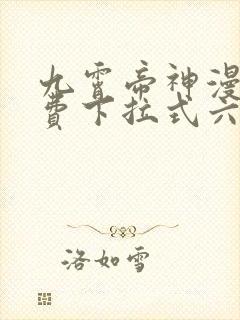 九霄帝神漫
费下拉式六
洛如雪